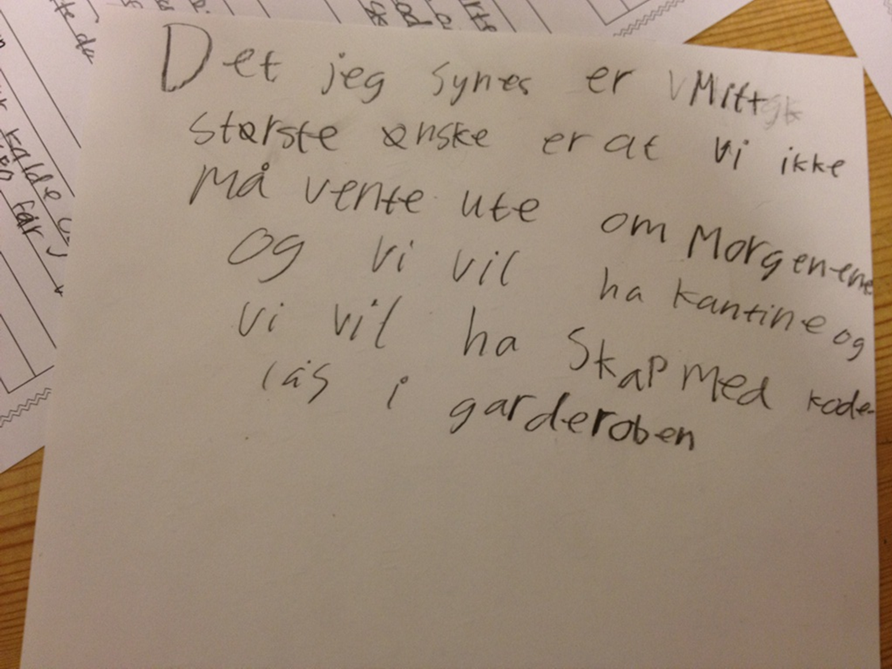 Det jeg synes er Mitt
største ønske er at vi ikke
Må vente ute om Morgenene
og vi vil ha kantine og
vi vil ha Skap Med kode-
lås i garderoben
kalde
får